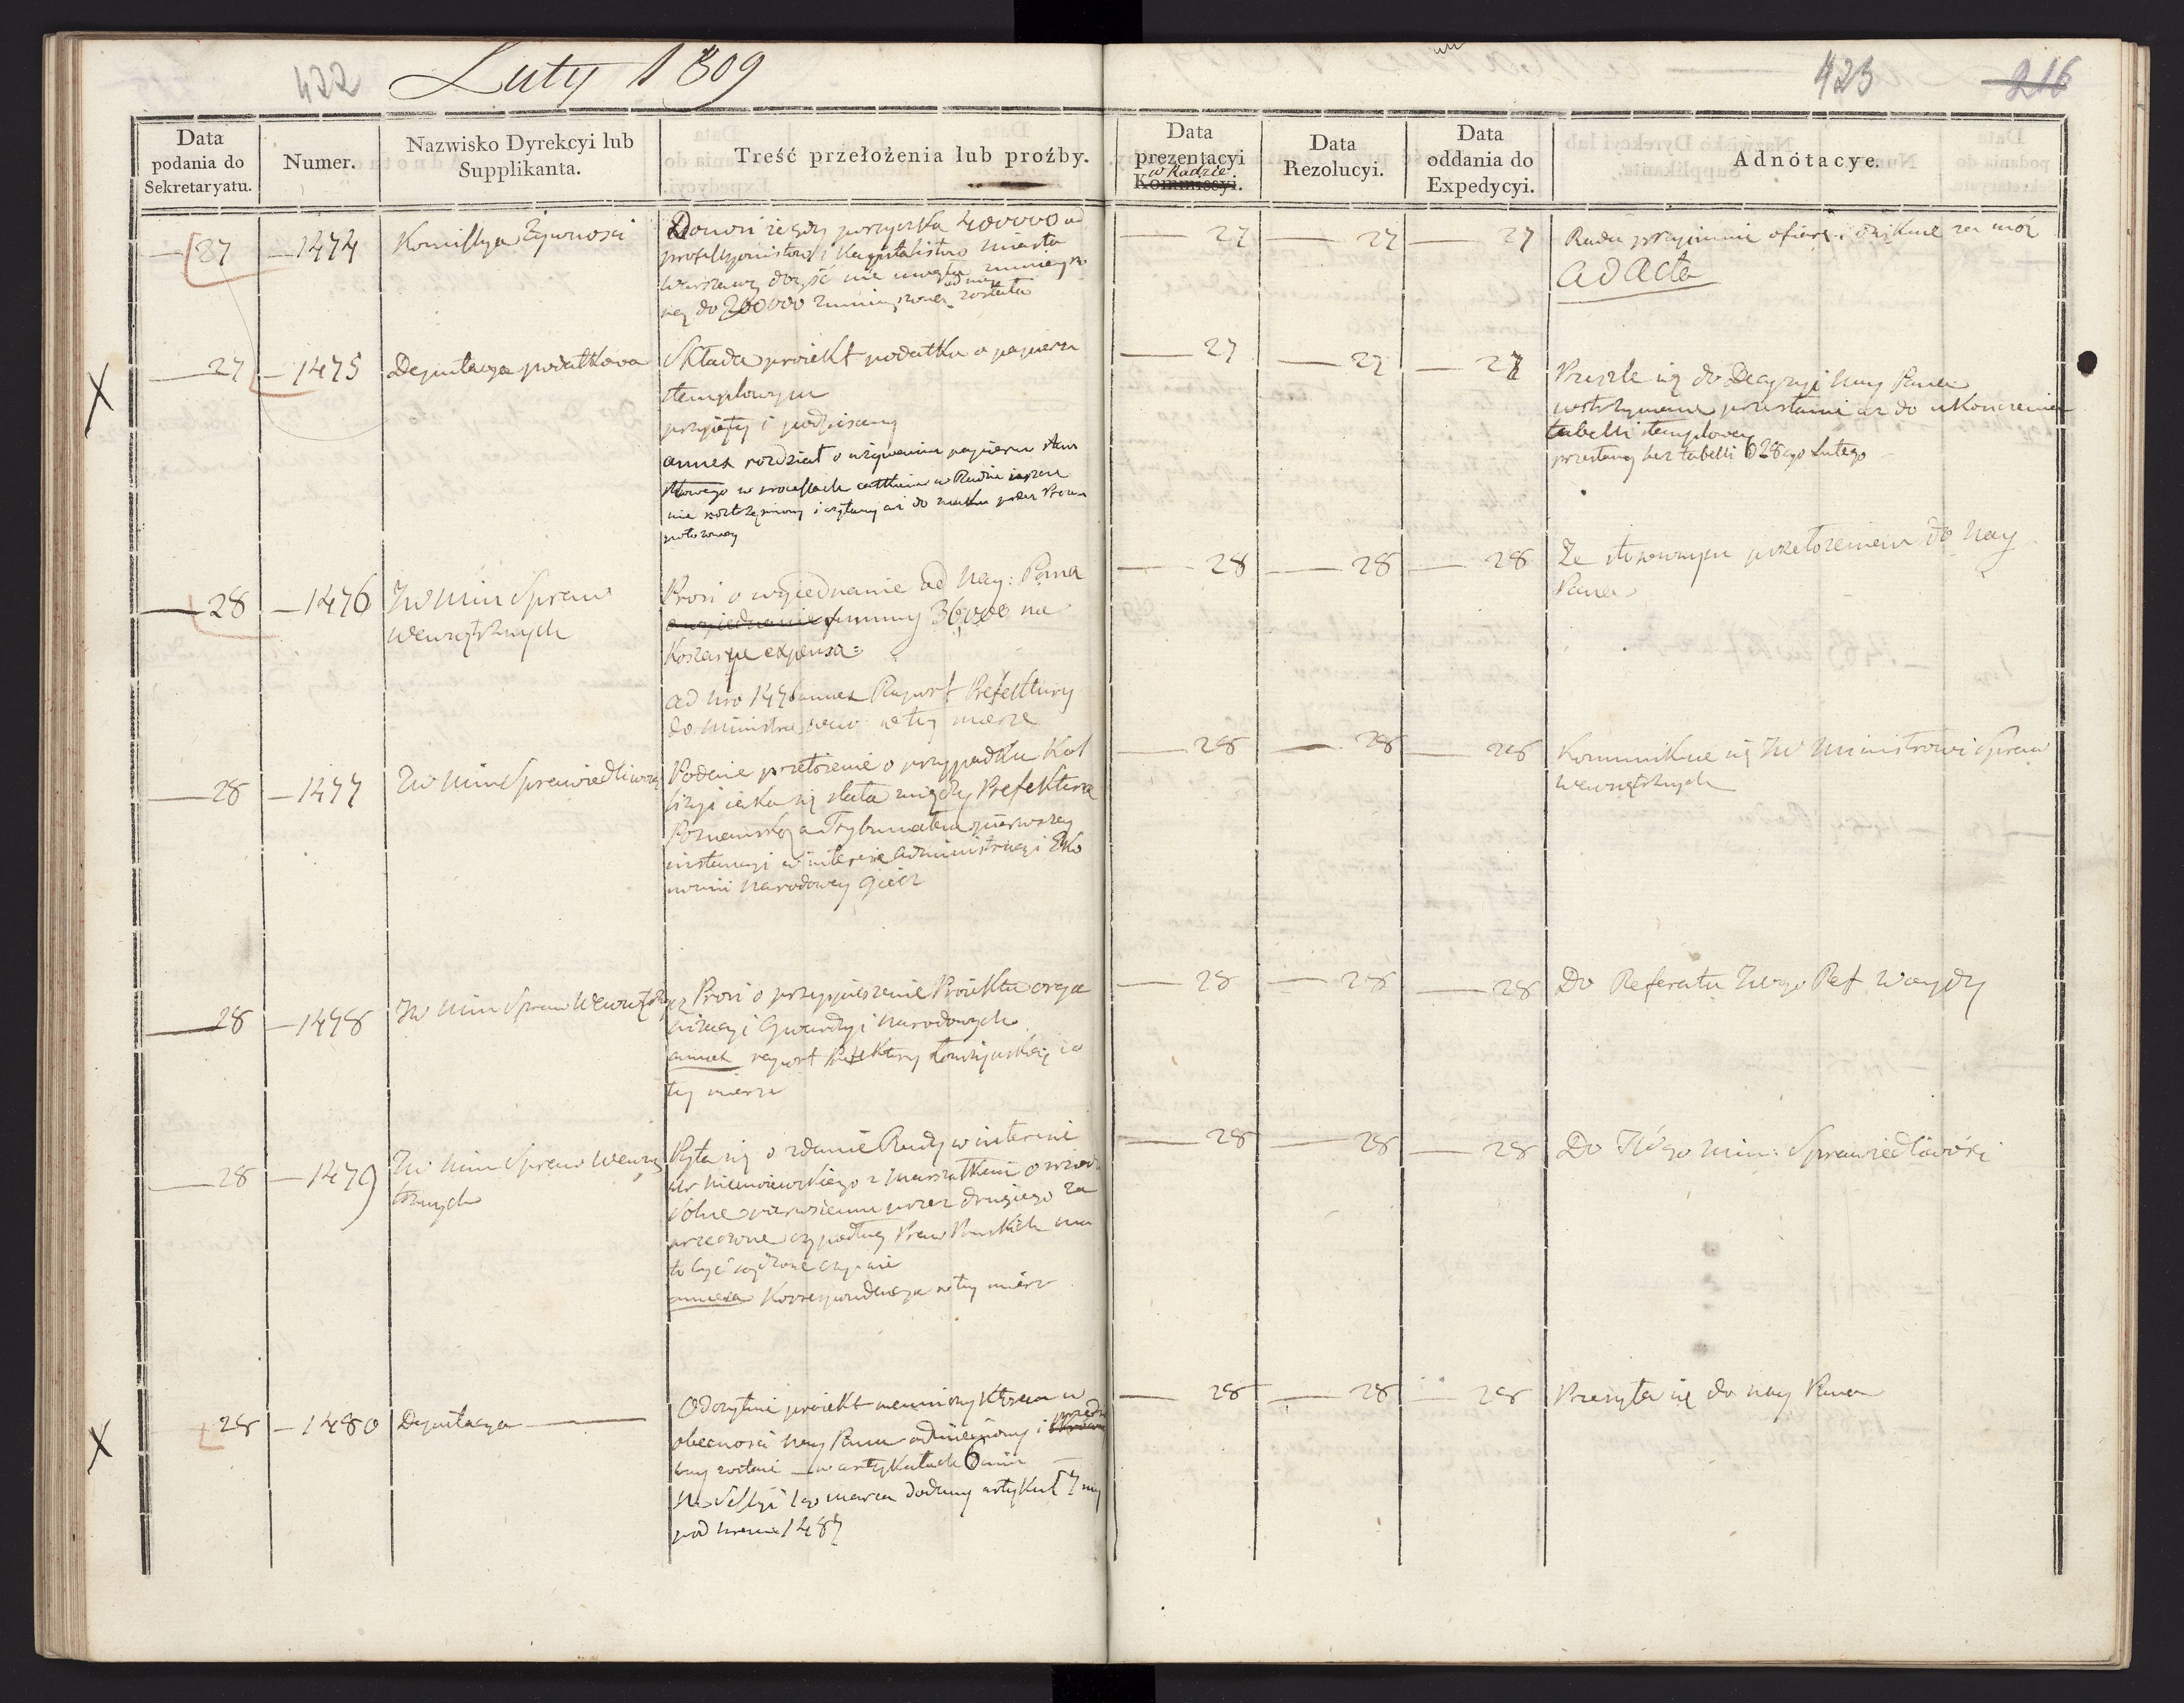 422 Luty 1809
423 216
Data podania do Sekretaryatu.
Numer.
Nazwisko Dyrekcyi lub Supplikanta.
Treść przełożenia lub proźby.
Data prezentacyi w Radzie Kommissyi.
Data Rezolucyi.
Data oddania do Expedycyi.
Adnotacye.
27 1474 Komissya Żywnosci
Donosi że gdy pożyczka 400000 od
professyonistow i Kapitalistow miasta
Warszawy doyść nie mogła
do 200000 zmnieyszona została
27 27 27
Rada przyimuie ofiarę i
ad acta
27 1475 Deputacya podatkowa
Składa proiekt podatku o papierze
stemplowym
przyięty i podpisany
annex rozdział o używaniu papieru stem
plowego w processach
nie roztrząśniony i
27 27 27
Prześle się do Decyzyi Nay Pana
wstrzymane przesłanie aż do ukonczenia
tabelli stemplowey
przesłany bez tabelli d 28go Lutego
28 1476 JW Min Spraw
Wewnętrznych
Prosi o wyiednanie od Nay: Pana
o wyiednanie summy 36000 na
Koszarne expensa
ad Nro 1476 annex Raport Prefektury
do Ministra Wew: w tey mierze
28 28 28
Ze stosownym przełożeniem do Nay
Pana
28 1477 JW Min Sprawiedliwości
Podaie przełożenie o przypadku Kol
lizyi iaka się stała między Prefekturą
Poznańską a Trybunałem pierwszey
instancyi w interesie administracyi Eko
nomii Narodowey Giecz
28 28 28
Kommunikue się JW Ministrowi Spraw
Wewnętrznych
28 1478 JW Min Spraw Wewnętrznych
Prosi o przyspieszenie Proiektu orga
nizacyi Gwardyi Narodowych
annex raport Prefektury Łomżyńskiey w
tey mierze
28 28 28
Do Referatu JWgo Ref Woydy
28 1479 JW Min Spraw Wewnę
trznych
Pyta się o zdanie Rady w interesie
Niemoiewskiego z Marszałkiem o
pierwszemu przez drugiego za
przeczone czy podług Praw Pruskich ma
to być sądzone czy nie
annexa Korrespondencya w tey mierze
28 28 28
Do JWgo Min: Sprawiedliwości
28 1480 Deputacya
Odczytuie proiekt mennicy który w
obecności Nay Pana odmieniony i
ny został w artykułach 6
Na Sessyi 1go marca dodany artykuł 7my
pod Nrem 1487
28 28 28
Przesyła się do Nay Pana